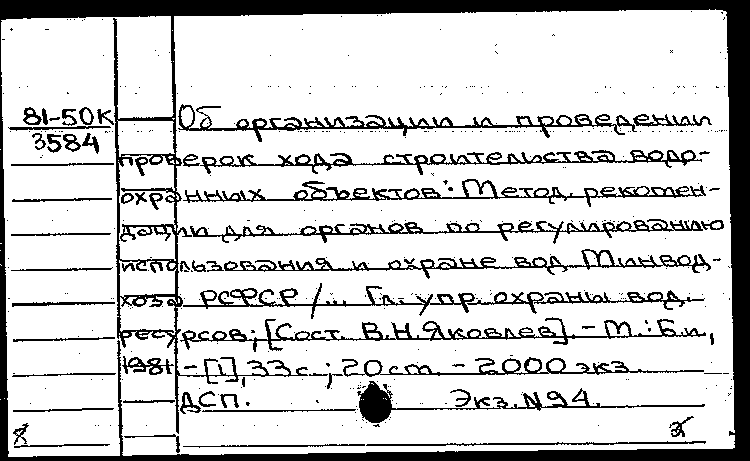 81-50К Об организации и проведении
3584
проверок хода строительства водо-
охранных объектов: Метод. рекомен-
дации для органов по регулированию
использования и охране вод Минвод-
хоза РСФСР /... Гл. упр. охраны вод.
ресурсов; [Сост. В.Н. Яковлев]. - М.: Б.и,
1981 - [1], 33 с.; 20 см. - 2000 экз.
ДСП. Экз. N94.
8